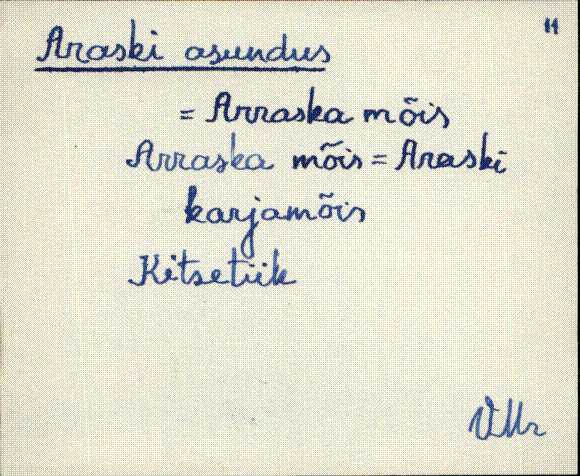 11
Araski asundus
= Arraska mõis
Arraska mõis = Araski
karjamõis
Kitsetiik
VMr